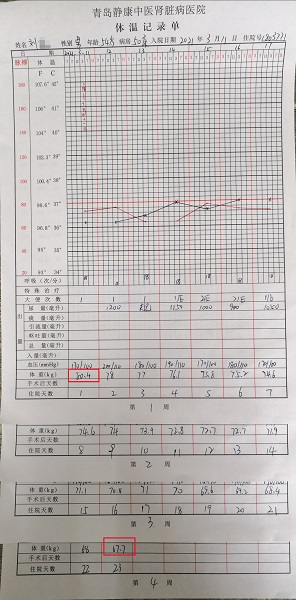 青岛静康中医肾脏病医院
体温记录单
姓名 刘 性别 年龄 54岁 病房 入院日期 2021年3月11日 住院号
日期
脉搏 体温
F C
107.6° 42°
106° 41°
104° 40°
102.2° 39°
100.4° 38°
98.6° 37°
96.8° 36°
95° 35°
93° 34°
呼吸(次/分)
特殊治疗
大便次数 1 1 1/E 2/E 2/E
出量
尿量(毫升) 1200 1150 1000 900 1050
痰量(毫升)
引流量(毫升)
呕吐量(毫升)
总量(毫升)
入量(毫升)
血压(mmHg) 170/100 200/110 180/100 190/110 170/100 180/110
体重(kg) 80.4 78 77 76.1 75.8 75.2 74.6
手术后天数
住院天数 1 2 3 4 5 6 7
第 1 周
体重(kg) 74.6 74 73.9 73.8 72.7 72.7 71.9
手术后天数
住院天数 8 9 10 11 12 13 14
第 2 周
体重(kg) 71.1 70.8 71 70 69.6 69.2 68.4
手术后天数
住院天数 15 16 17 18 19 20 21
第 3 周
体重(kg) 68 67.7
手术后天数
住院天数 22 23
第 4 周